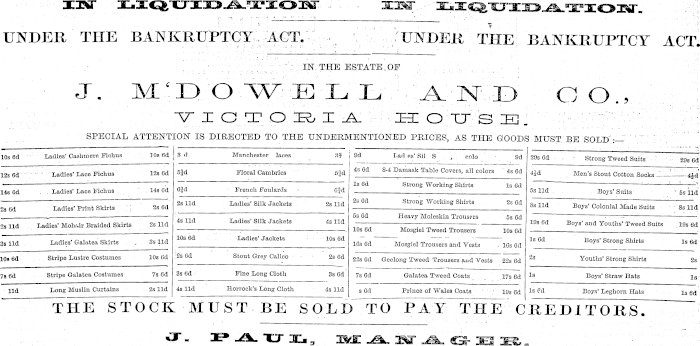 IN LIQUIDATION IN LIQUIDATION.
UNDER THE BANKRUPTCY ACT. UNDER THE BANKRUPTCY ACT.
IN THE ESTATE OF
J. M'DOWELL AND CO.,
VICTORIA HOUSE.
SPECIAL ATTENTION IS DIRECTED TO THE UNDERMENTIONED PRICES, AS THE GOODS MUST BE SOLD :—
10s 6d Ladies' Cashmere Fichus 10s 6d
12s 6d Ladies' Lace Fichus 12s 6d
14s 6d Ladies' Lace Fichus 14s 6d
2s 6d Ladies' Print Skirts 2s 6d
2s 11d Ladies' Mohair Braided Skirts 2s 11d
2s 11d Ladies' Galatea Skirts 2s 11d
10s 6d Stripe Lustre Costumes 10s 6d
7s 6d Stripe Galatea Costumes 7s 6d
11d Long Muslin Curtains 2s 11d
Manchester laces
5½d Floral Cambrics 5½d
6½d French Foulards 6½d
2s 11d Ladies' Silk Jackets 2s 11d
4s 11d Ladies' Silk Jackets 4s 11d
10s 6d Ladies' Jackets 10s 6d
2s 6d Stout Grey Calico 2s 6d
3s 6d Fine Long Cloth 3s 6d
4s 11d Horrock's Long Cloth 4s 11d
9d 9d
4s 6d 8-4 Damask Table Covers, all colors 4s 6d
1s 6d Strong Working Shirts 1s 6d
2s 6d Strong Working Shirts 2s 6d
5s 6d Heavy Moleskin Trousers 5s 6d
10s 6d Mosgiel Tweed Trousers 10s 6d
16s 6d Mosgiel Trousers and Vests 16s 6d
22s 6d Geelong Tweed Trousers and Vests 22s 6d
7s 6d Galatea Tweed Coats 17s 6d
6d Prince of Wales Coats 19s 6d
29s 6d Strong Tweed Suits 29s 6d
4½d Men's Stout Cotton Socks 4½d
5s 11d Boys' Suits 5s 11d
8s 11d Boys' Colonial Made Suits 8s 11d
10s 6d Boys' and Youths' Tweed Suits 10s 6d
1s 6d Boys' Strong Shirts 1s 6d
2s Youths' Strong Shirts 2s
1s Boys' Straw Hats 1s
1s 6d Boys' Leghorn Hats 1s 6d
THE STOCK MUST BE SOLD TO PAY THE CREDITORS.
J. PAUL, MANAGER.